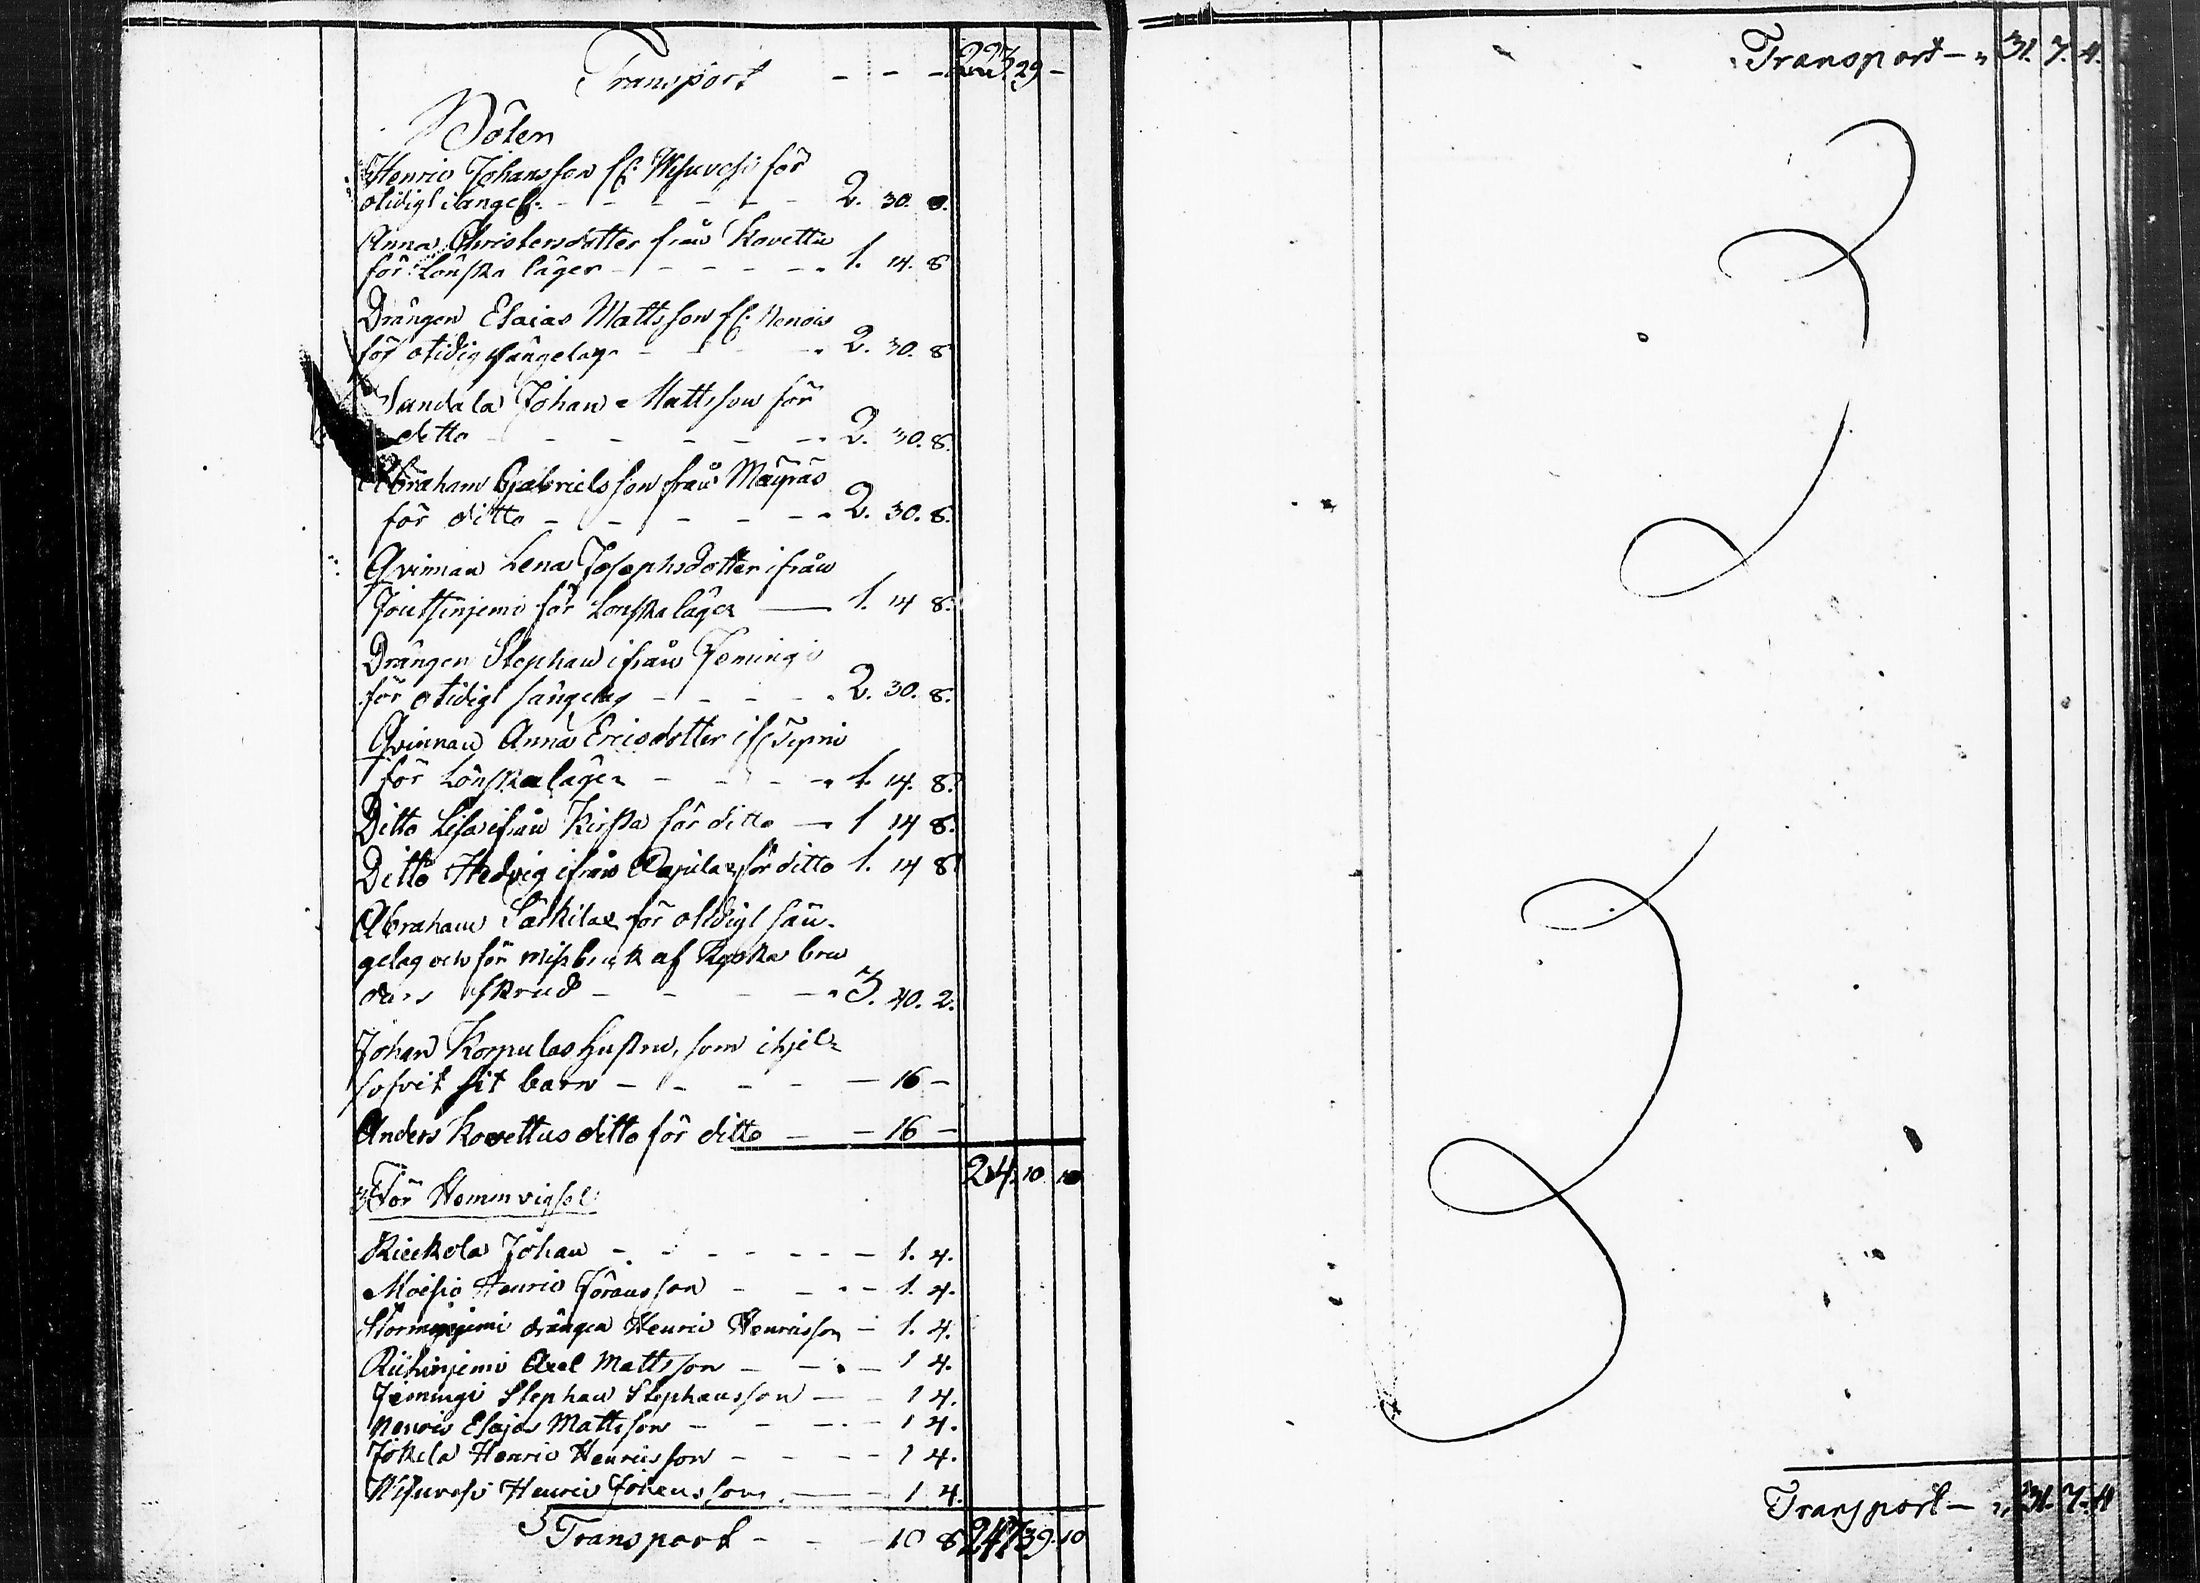 Transport - - - 223. 29 -
Böter
Henric Johansson fr: Wesuvesi för
otidigt sängel: - - - - - 2. 30. 8.
Anna Christersdotter från Kovettu
för Lönska läger - - - - 1. 14. 8
Drängen Esaias Mattsson fr: Nenois
för otidig sängelag - - - - 2. 30. 8
Sandala Johan Mattsson för
ditto - - - - - 2. 30. 8.
Abraham Gabrielsson från Mäyräs
för ditto - - - - - 2. 30. 8.
Qvinnan Lena Josephsdotter ifrån
Joutsinjemi för Lönskaläger — 1. 14 8.
Drängen Stephan ifrån Jemingi
för otidigt sängelag - - - - 2. 30. 8.
Qvinnan Anna Ericsdotter if:
för Lönskaläger - - - - 1. 14. 8.
Ditto Lisa ifrån Kirsta för ditto — 1 14 8.
Ditto Hedvig ifrån för ditto 1. 14 8
Abraham Särkilax för otidigt sän-
gelag och för missbruk af Kyrko bru
dens skrud - - - - 3. 40. 2.
Johan Korpulas hustru, som ihjel-
sofvit sit barn - - - - — 16 -
Anders Kovettus ditto för ditto — — 16 —
24. 10 10
För Hemmvigsel:
Kieckola Johan - - - - - - 1. 4.
Moisio Henric Göransson - - - - 1. 4.
drängen Henric Henricsson - 1. 4.
Riihinjemi Axel Mattsson - - - 1 4.
Jemingi Stephan Stephansson — - 1 4.
Nenois Esajas Mattsson - - - - 1 4.
Jokela Henric Henricsson - - - - 1 4.
Wesuvesi Henric Johansson — - 1 4.
Transport - - - 10 8 247 39. 10
Transport - 31. 7. 4.
Transport - 31. 7. 4